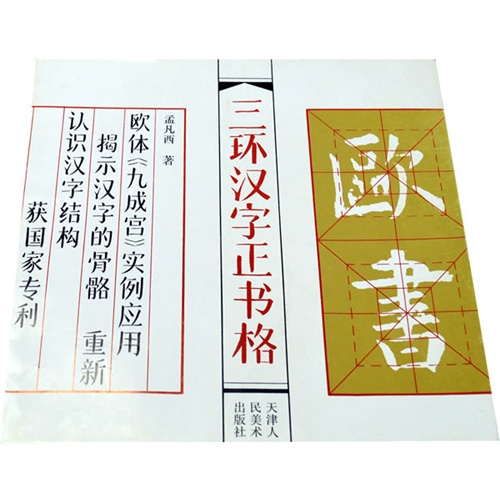 欧書
三环汉字正书格
天津人
民美术
出版社
孟凡西 著
欧体《九成宫》实例应用
揭示汉字的骨骼 重新
认识汉字结构
获国家专利